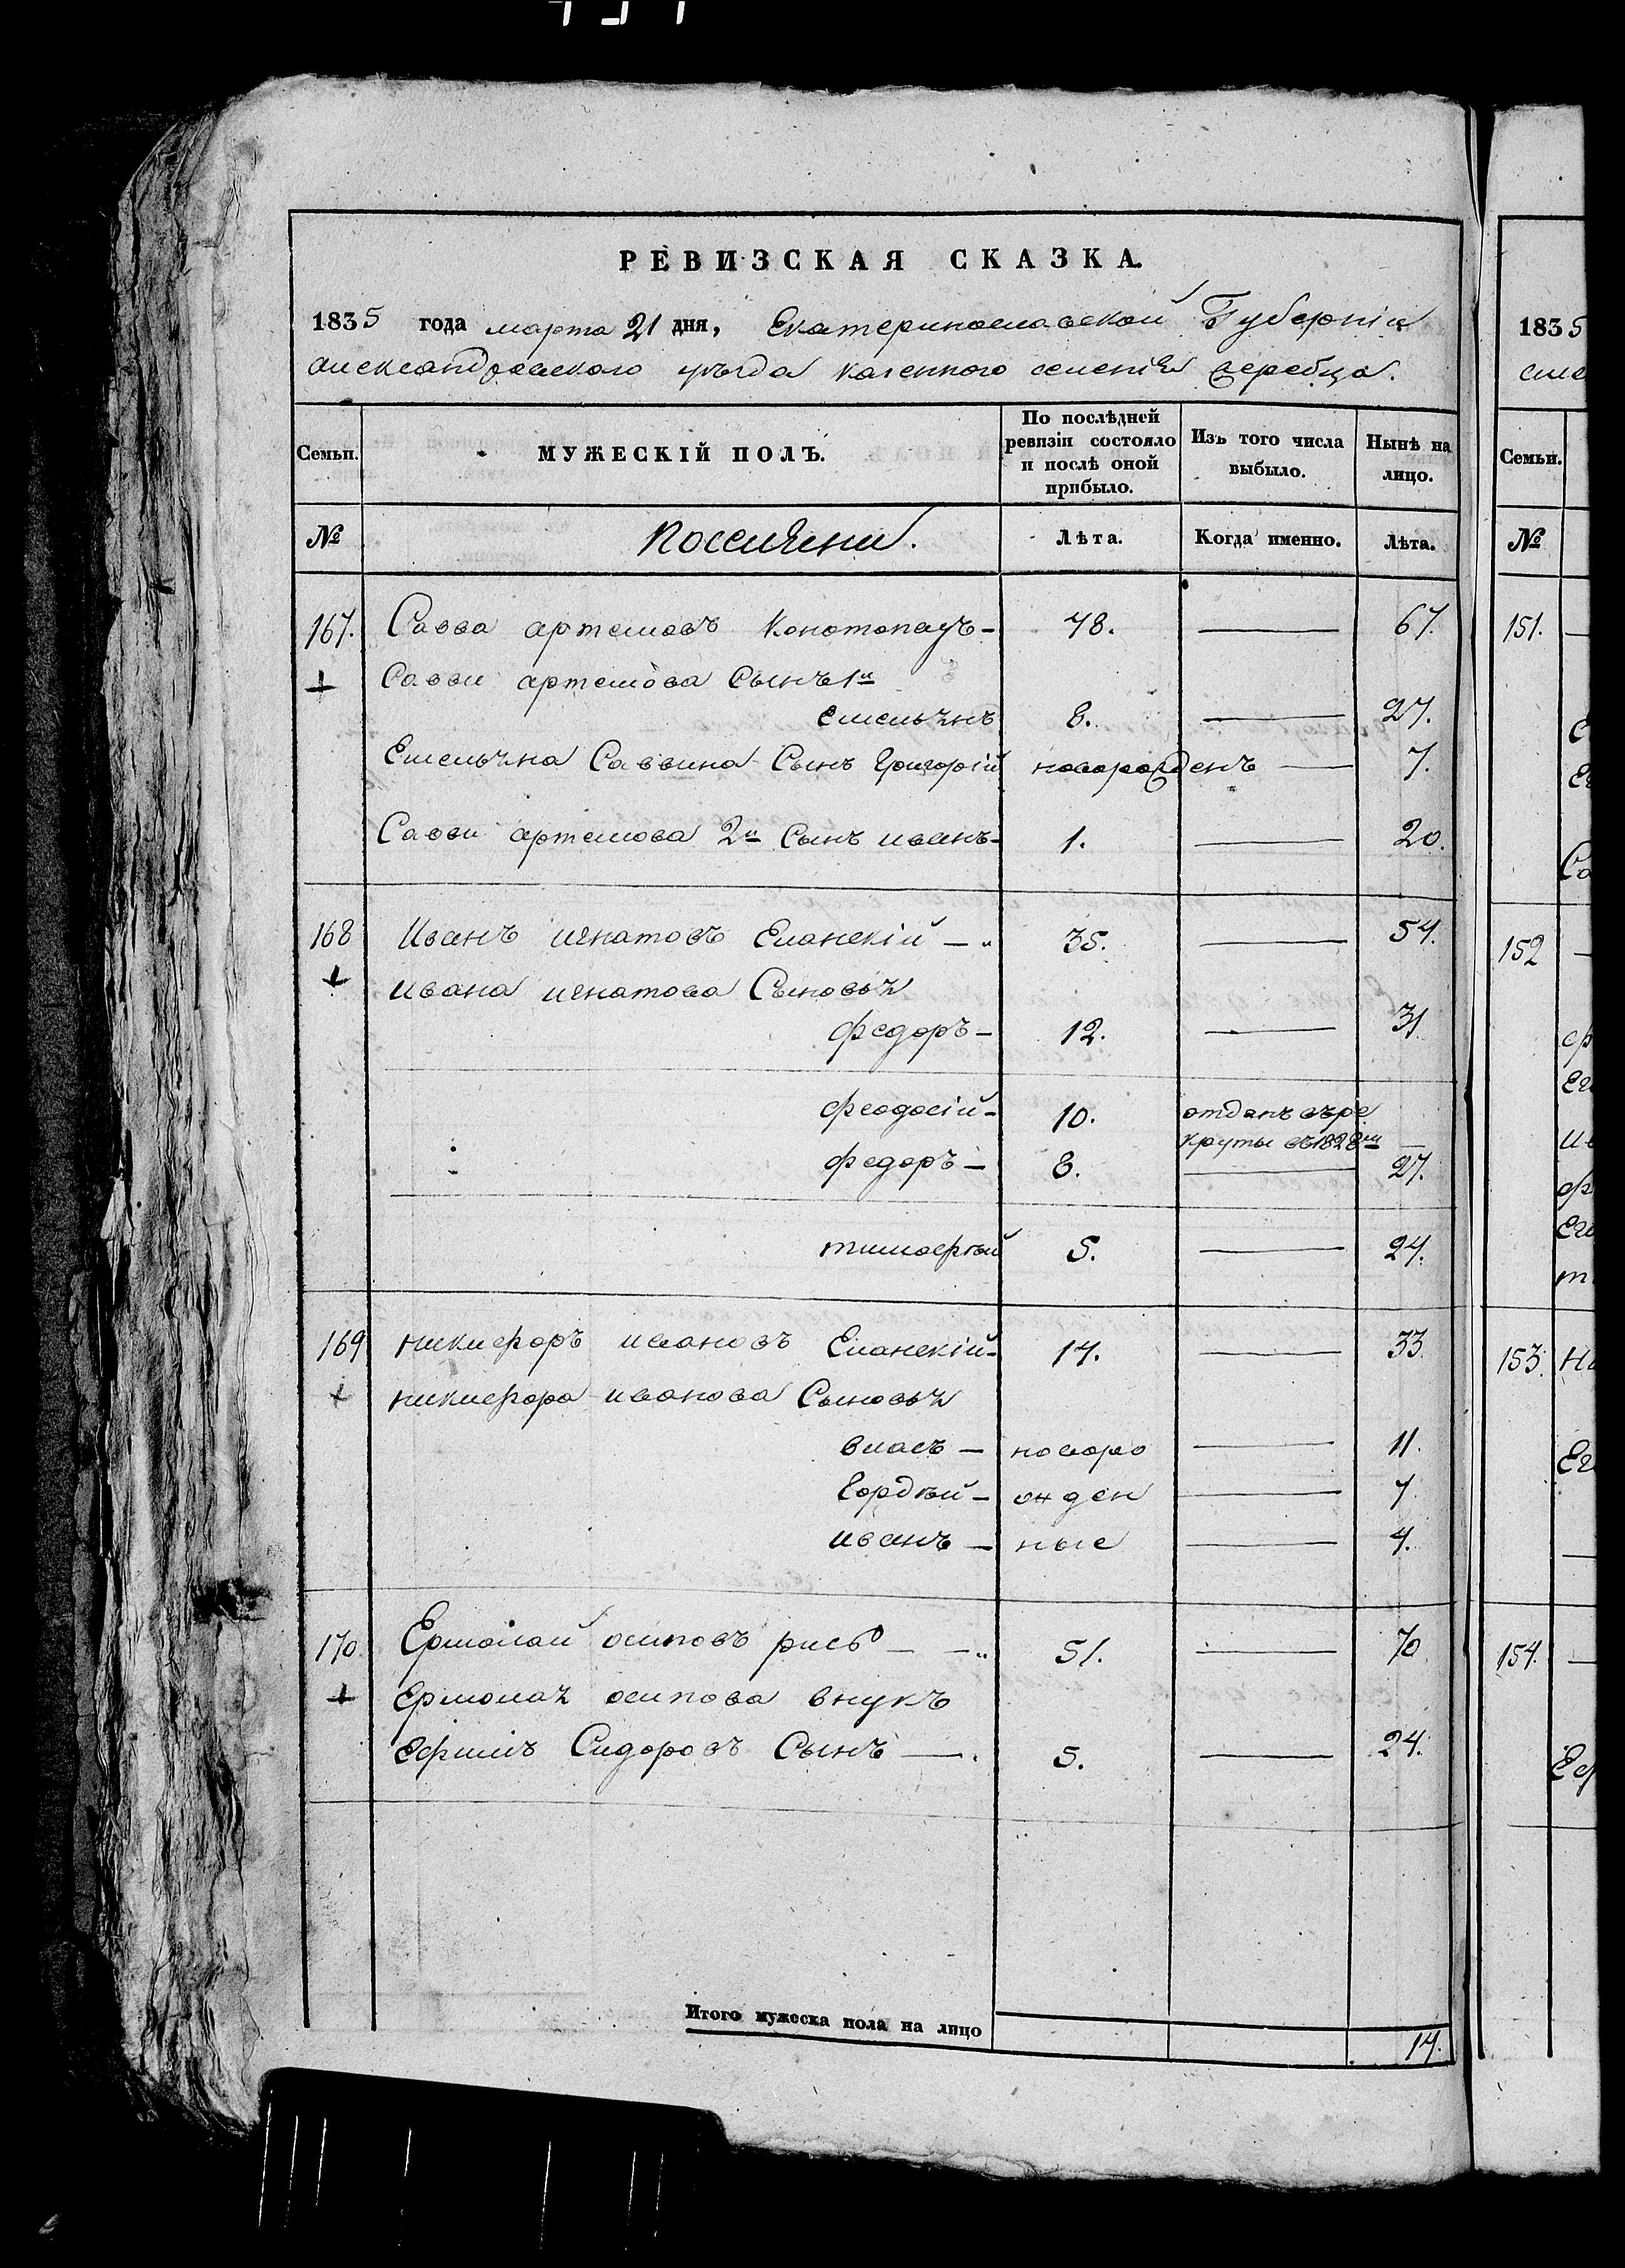 РЕВИЗСКАЯ СКАЗКА.
1835 года марта 21 дня, Екатеринославской Губерніи
александровского уѣзда казенного селенія жеребца.
Семьи. МУЖЕСКІЙ ПОЛЪ. По послѣдней ревизіи состояло и послѣ оной прибыло. Изъ того числа выбыло. Нынѣ на лицо.
№ Поселяни. Лѣта. Когда именно. Лѣта.
167. Савва артемовъ Конотопецъ - 48. — 67.
Саввы артемова Сынъ 1й
емельянъ 8. — 27.
Емельяна Саввина Сынъ Григорій новорожденъ — 7.
Саввы артемова 2й Сынъ иванъ - 1. — 20.
168 Иванъ игнатовъ Еланскій — 35. — 54.
ивана игнатова Сыновья
федоръ - 12. — 31
феодосій - 10. отданъ въ ре
круты въ 1828м —
федоръ — 8. — 27.
тимофей 5. — 24.
169 никифоръ ивановъ Еланскій - 14. — 33.
никифора иванова Сыновья
власъ — новоро — 11.
Гордѣй — жден — 7
иванъ — ные — 4.
170 Ермолай осиповъ — 51. — 70
ермолая осипова внукъ
ефимъ Сидоровъ Сынъ — 5. — 24.
Итого мужеска пола на лицо 14.
1835
Семьи.
№
151.
152
153.
154.